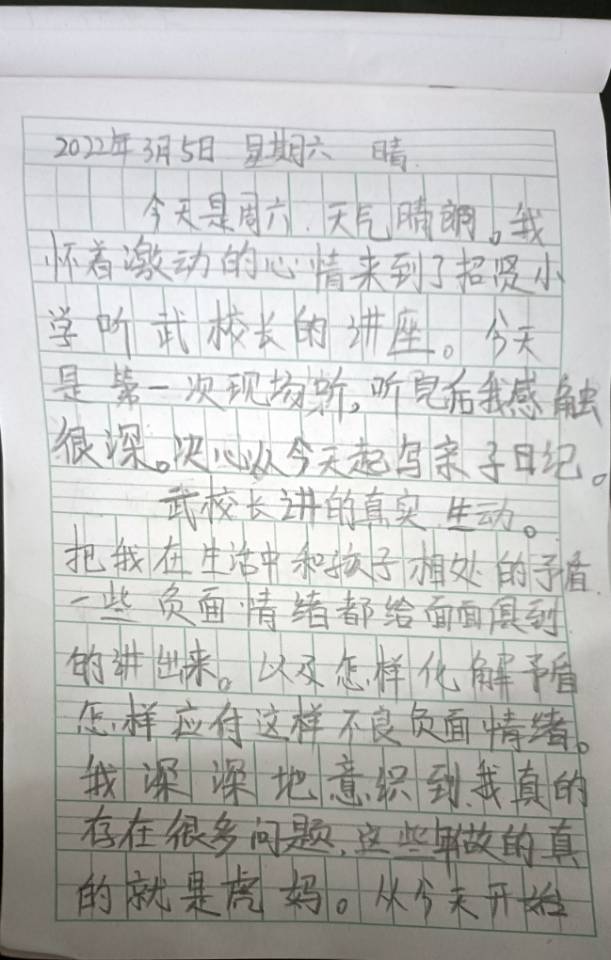 2022年3月5日 星期六 晴.
今天是周六.天气晴朗。我
怀着激动的心情来到了招贤小
学听武校长的讲座。今天
是第一次现场听,听完后我感触
很深。决心从今天起写亲子日记。
武校长讲的真实.生动。
把我在生活中和孩子相处的矛盾.
一些负面情绪都给面面俱到
的讲出来。以及怎样化解矛盾
怎样应付这样不良负面情绪。
我深深地意识到.我真的
存在很多问题,这些年做的真
的就是虎妈。从今天开始